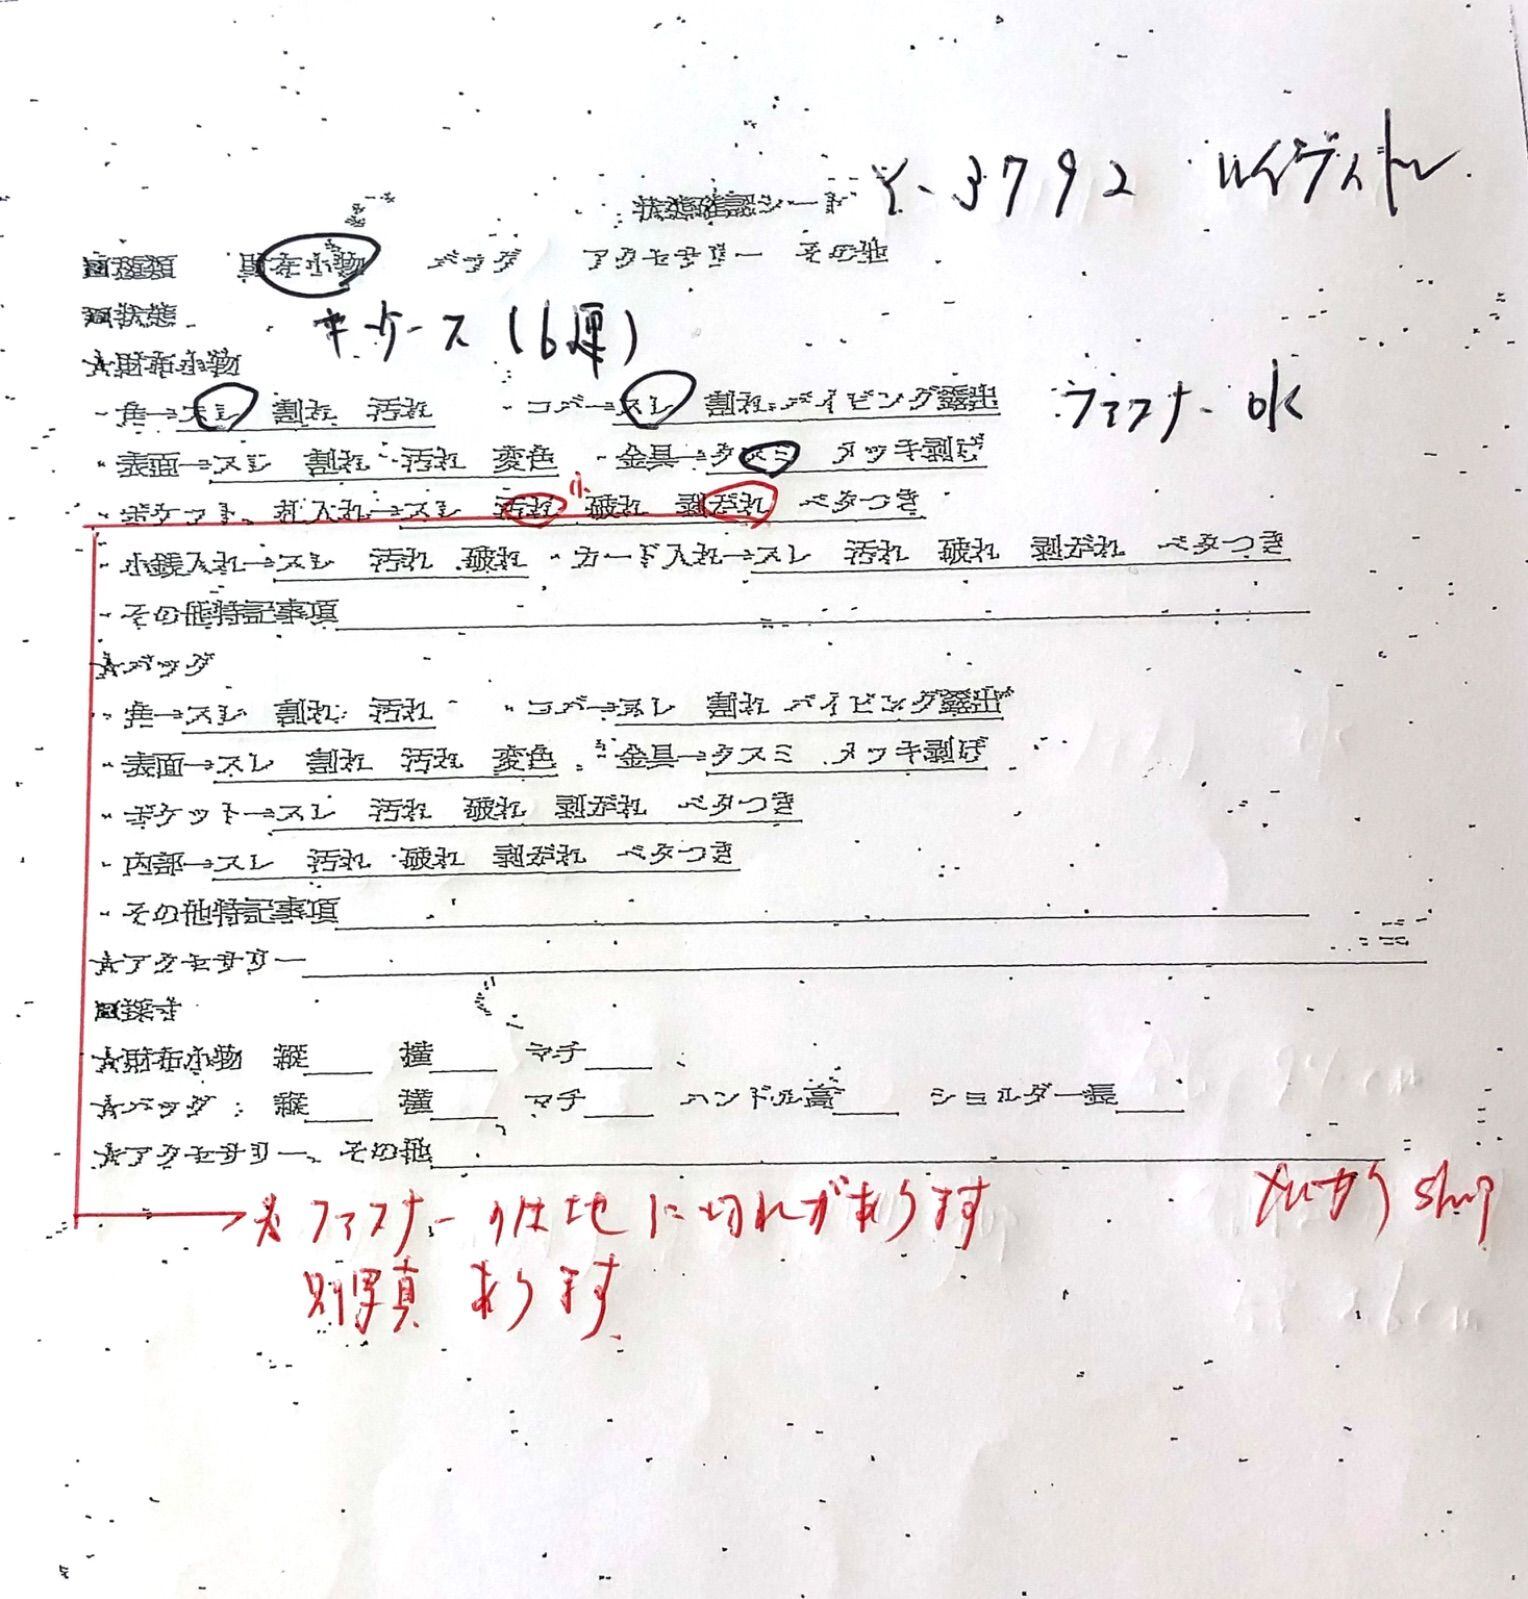 状態確認シート Y-3792 ルイヴィトン
■種類 財布小物 バッグ アクセサリー その他
■状態 キーケース (6連)
★財布小物
・角→スレ 割れ 汚れ ・コバ→スレ 割れ パイピング露出 ファスナー ok
・表面→スレ 割れ 汚れ 変色 ・金具→クスミ メッキ剥げ
・ポケット、札入れ→スレ 汚れ 破れ 剥がれ ベタつき
・小銭入れ→スレ 汚れ 破れ ・カード入れ→スレ 汚れ 破れ 剥がれ ベタつき
・その他特記事項
★バッグ
・角→スレ 割れ 汚れ ・コバ→スレ 割れ パイピング露出
・表面→スレ 割れ 汚れ 変色 ・金具→クスミ メッキ剥げ
・ポケット→スレ 汚れ 破れ 剥がれ ベタつき
・内部→スレ 汚れ 破れ 剥がれ ベタつき
・その他特記事項
★アクセサリー
■採寸
★財布小物 縦 横 マチ
★バッグ 縦 横 マチ ハンドル高 ショルダー長
★アクセサリー、その他
※ファスナーの生地に切れがあります shop
別写真あります